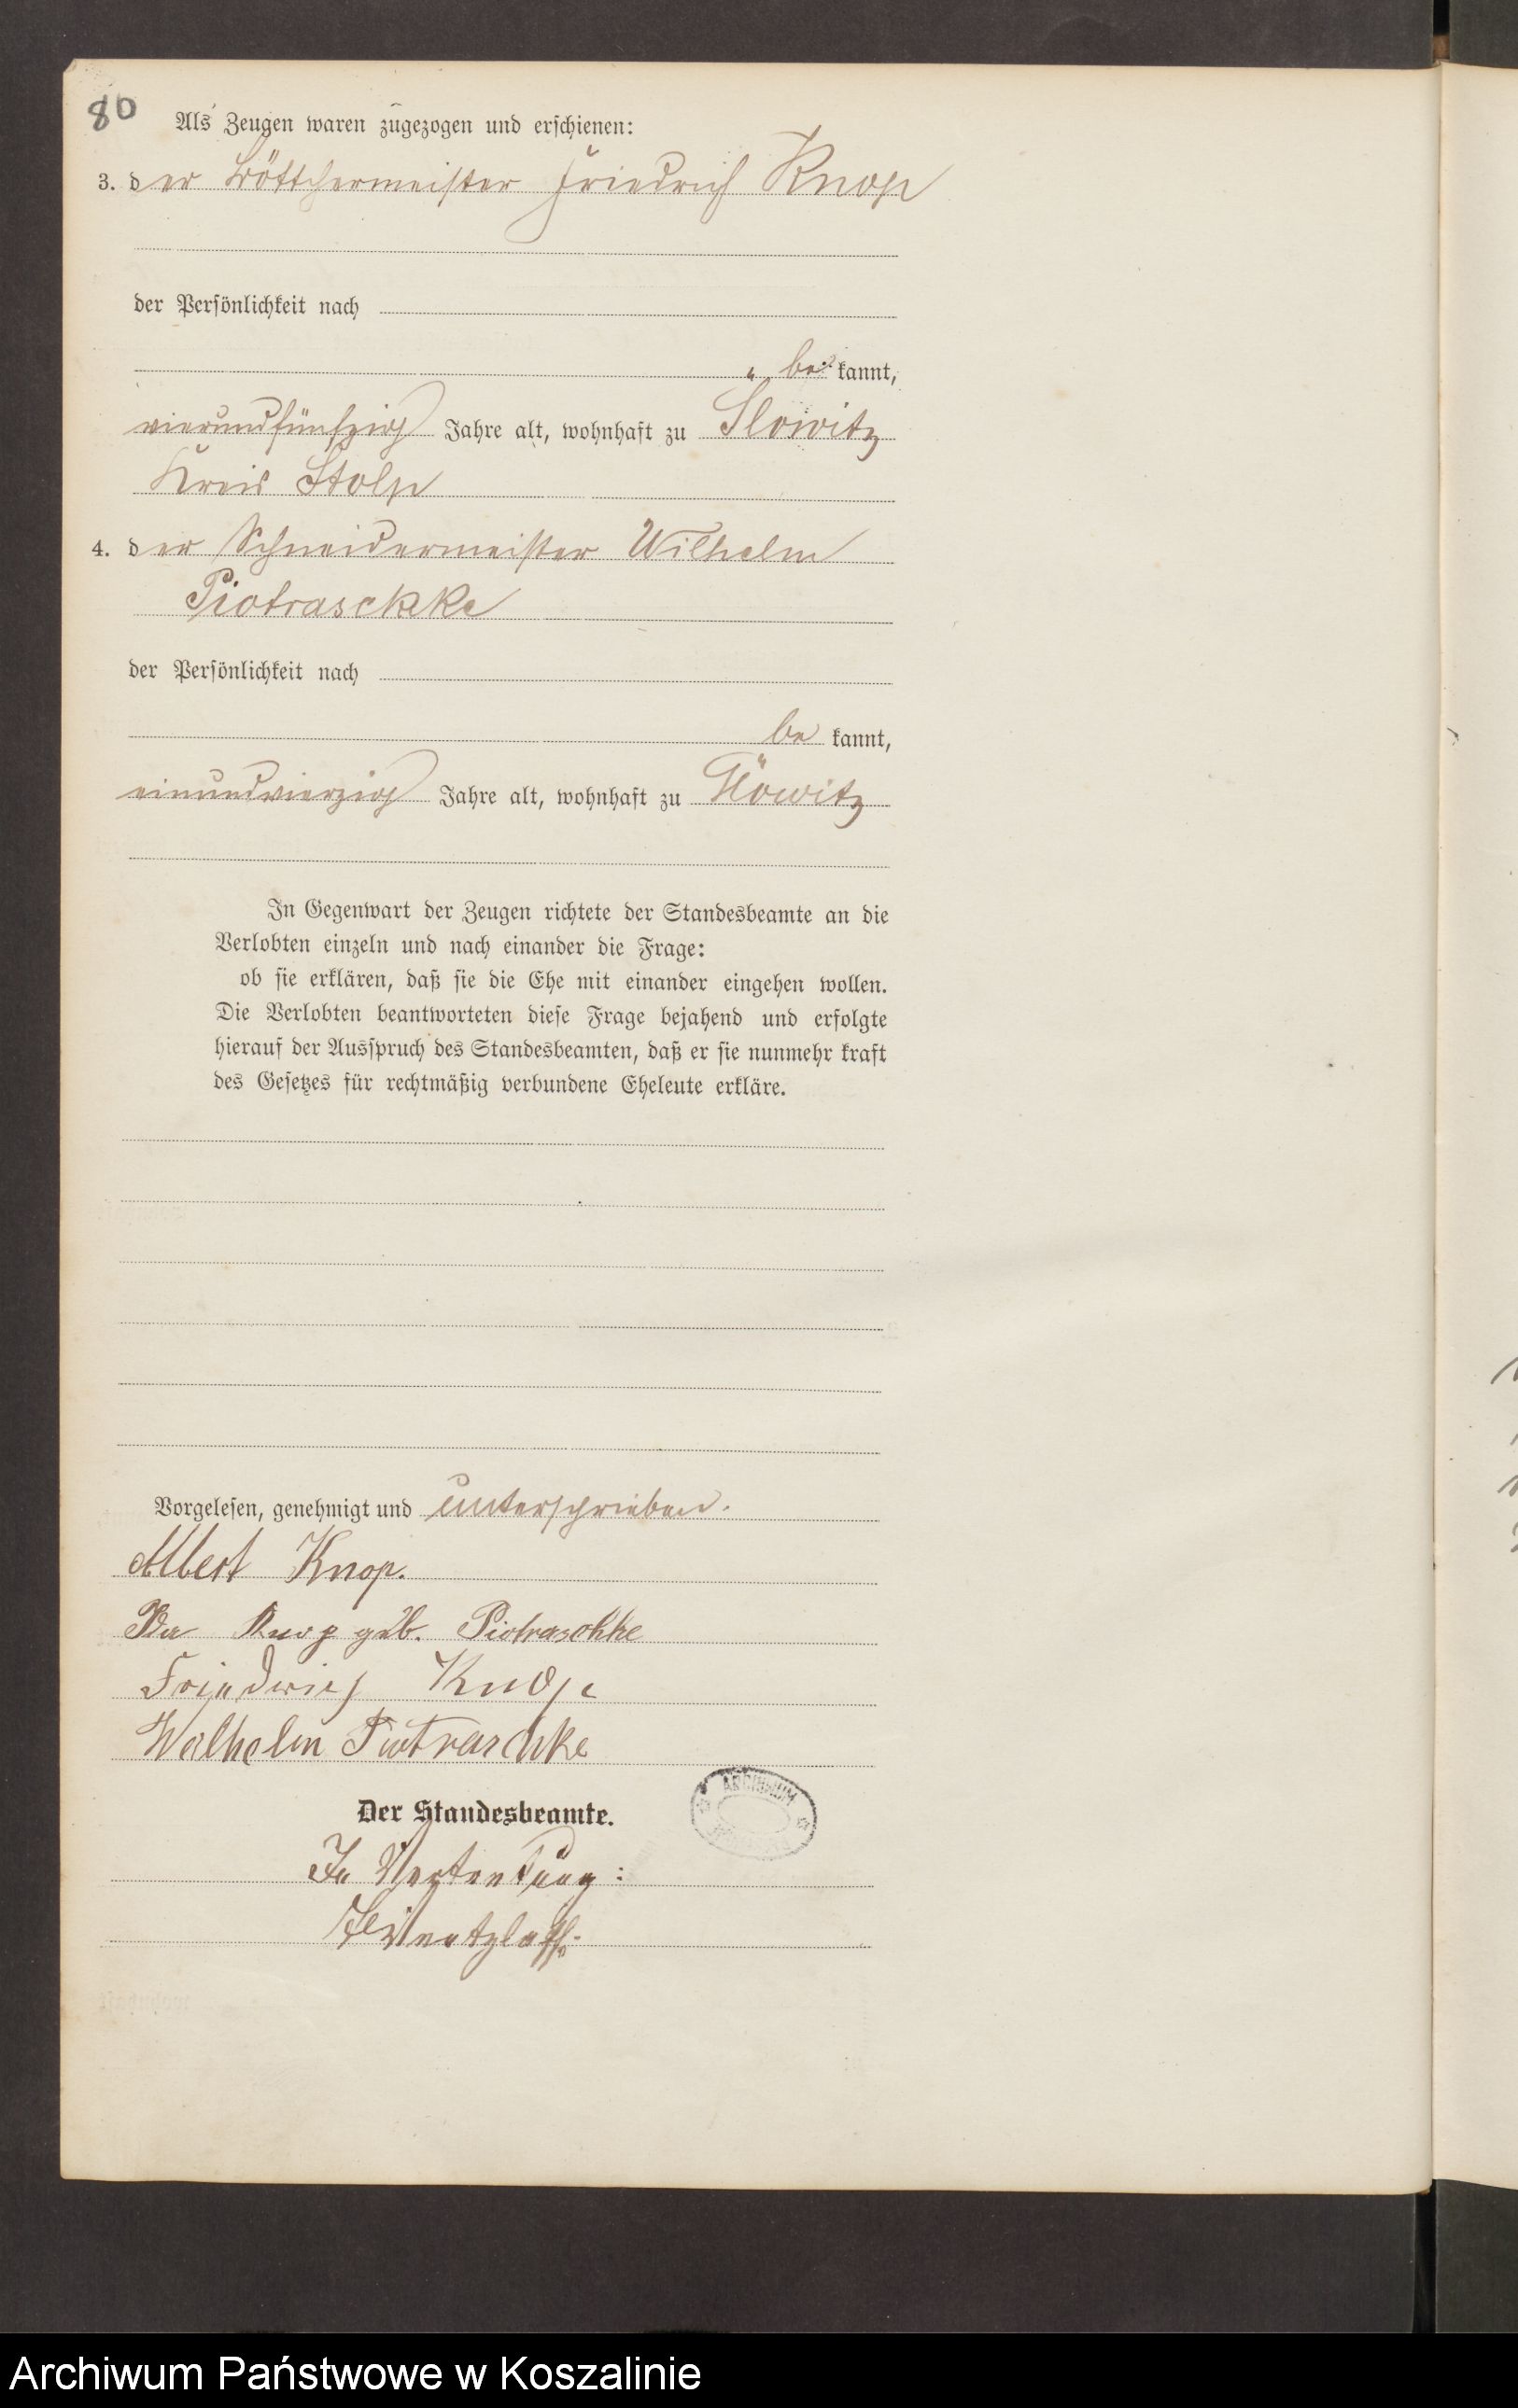 80
Als Zeugen waren zugezogen und erschienen:
3. der Böttchermeister Friedrich Knop
der Persönlichkeit nach
be kannt,
vierundfünfzig Jahre alt, wohnhaft zu Flöwitz
Kreis Stolp
4. der Schneidermeister Wilhelm
Piotraschke
der Persönlichkeit nach
be kannt,
einundvierzig Jahre alt, wohnhaft zu Flöwitz
In Gegenwart der Zeugen richtete der Standesbeamte an die
Verlobten einzeln und nach einander die Frage:
ob sie erklären, daß sie die Ehe mit einander eingehen wollen.
Die Verlobten beantworteten diese Frage bejahend und erfolgte
hierauf der Ausspruch des Standesbeamten, daß er sie nunmehr kraft
des Gesetzes für rechtmäßig verbundene Eheleute erkläre.
Vorgelesen, genehmigt und unterschrieben.
Albert Knop.
Ida Knop geb. Piotraschke
Friedrich Knop
Wilhelm Piotraschke
Der Standesbeamte.
ARCHIWUM
In Vertretung:
Archiwum Państwowe w Koszalinie